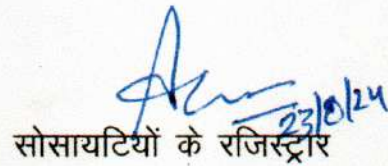 23/8/24
सोसायटियों के रजिस्ट्रार